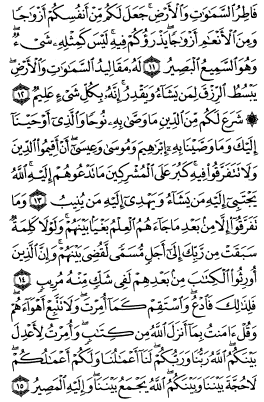 فَاطِرُ ٱلسَّمَٰوَٰتِ وَٱلْأَرْضِ ۚ جَعَلَ لَكُم مِّنْ أَنفُسِكُمْ أَزْوَٰجًا
وَمِنَ ٱلْأَنْعَٰمِ أَزْوَٰجًا ۖ يَذْرَؤُكُمْ فِيهِ ۚ لَيْسَ كَمِثْلِهِۦ شَىْءٌ ۖ
وَهُوَ ٱلسَّمِيعُ ٱلْبَصِيرُ ١١ لَهُۥ مَقَالِيدُ ٱلسَّمَٰوَٰتِ وَٱلْأَرْضِ ۖ
يَبْسُطُ ٱلرِّزْقَ لِمَن يَشَآءُ وَيَقْدِرُ ۚ إِنَّهُۥ بِكُلِّ شَىْءٍ عَلِيمٌ ١٢
۞ شَرَعَ لَكُم مِّنَ ٱلدِّينِ مَا وَصَّىٰ بِهِۦ نُوحًا وَٱلَّذِىٓ أَوْحَيْنَآ
إِلَيْكَ وَمَا وَصَّيْنَا بِهِۦٓ إِبْرَٰهِيمَ وَمُوسَىٰ وَعِيسَىٰٓ ۖ أَنْ أَقِيمُوا۟ ٱلدِّينَ
وَلَا تَتَفَرَّقُوا۟ فِيهِ ۚ كَبُرَ عَلَى ٱلْمُشْرِكِينَ مَا تَدْعُوهُمْ إِلَيْهِ ۚ ٱللَّهُ
يَجْتَبِىٓ إِلَيْهِ مَن يَشَآءُ وَيَهْدِىٓ إِلَيْهِ مَن يُنِيبُ ١٣ وَمَا
تَفَرَّقُوٓا۟ إِلَّا مِنۢ بَعْدِ مَا جَآءَهُمُ ٱلْعِلْمُ بَغْيًۢا بَيْنَهُمْ ۚ وَلَوْلَا كَلِمَةٌ
سَبَقَتْ مِن رَّبِّكَ إِلَىٰٓ أَجَلٍ مُّسَمًّى لَّقُضِىَ بَيْنَهُمْ ۚ وَإِنَّ ٱلَّذِينَ
أُورِثُوا۟ ٱلْكِتَٰبَ مِنۢ بَعْدِهِمْ لَفِى شَكٍّ مِّنْهُ مُرِيبٍ ١٤
فَلِذَٰلِكَ فَٱدْعُ ۖ وَٱسْتَقِمْ كَمَآ أُمِرْتَ ۖ وَلَا تَتَّبِعْ أَهْوَآءَهُمْ ۖ
وَقُلْ ءَامَنتُ بِمَآ أَنزَلَ ٱللَّهُ مِن كِتَٰبٍ ۖ وَأُمِرْتُ لِأَعْدِلَ
بَيْنَكُمُ ۖ ٱللَّهُ رَبُّنَا وَرَبُّكُمْ ۖ لَنَآ أَعْمَٰلُنَا وَلَكُمْ أَعْمَٰلُكُمْ ۖ
لَا حُجَّةَ بَيْنَنَا وَبَيْنَكُمُ ۖ ٱللَّهُ يَجْمَعُ بَيْنَنَا ۖ وَإِلَيْهِ ٱلْمَصِيرُ ١٥